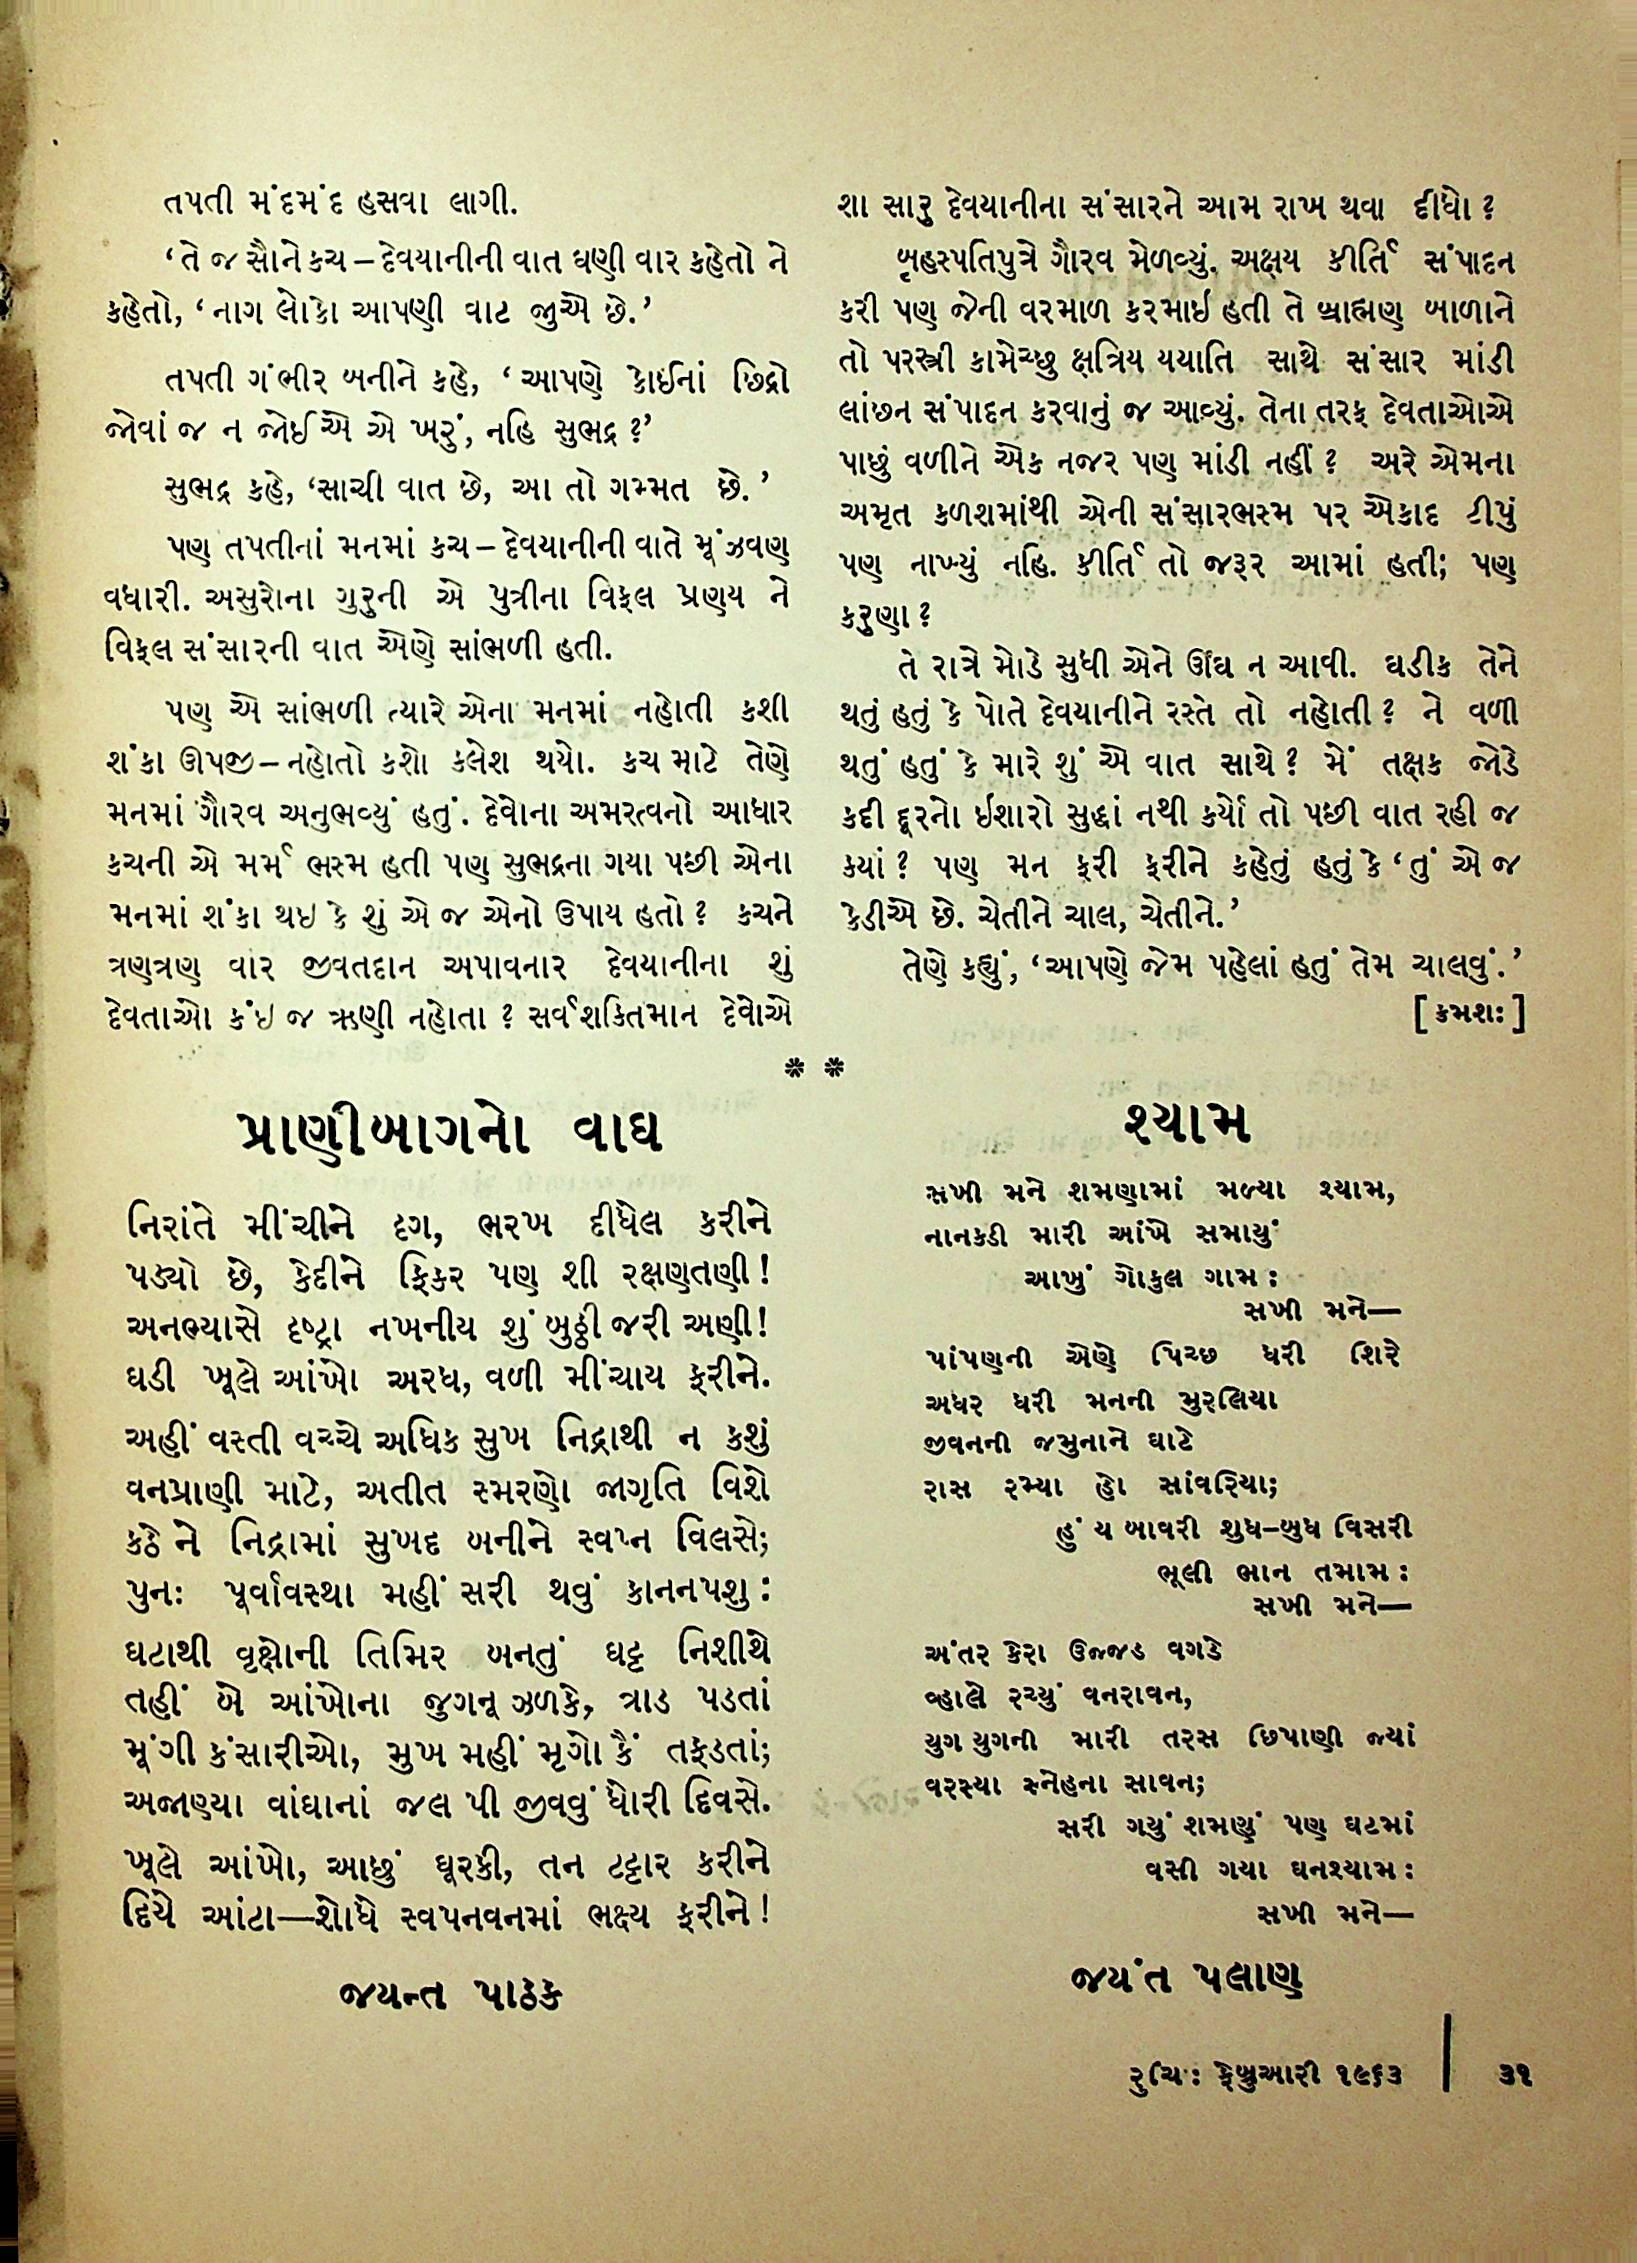 તપતી મંદમંદ હસવા લાગી.
‘તે જ સૌને કચ – દેવયાનીની વાત ઘણી વાર કહેતો ને
કહેતો, ‘નાગ લોકો આપણી વાટ જુએ છે.’
તપતી ગંભીર બનીને કહે, ‘આપણે કોઈનાં છિદ્રો
જોવાં જ ન જોઈએ એ ખરું, નહિ સુભદ્ર ?’
સુભદ્ર કહે, ‘સાચી વાત છે, આ તો ગમ્મત છે.’
પણ તપતીનાં મનમાં કચ – દેવયાનીની વાતે મૂંઝવણ
વધારી. અસુરોના ગુરુની એ પુત્રીના વિફલ પ્રણય ને
વિફલ સંસારની વાત એણે સાંભળી હતી.
પણ એ સાંભળી ત્યારે એના મનમાં નહોતી કશી
શંકા ઊપજી – નહોતો કશો કલેશ થયો. કચ માટે તેણે
મનમાં ગૌરવ અનુભવ્યું હતું. દેવોના અમરત્વનો આધાર
કચની એ મર્મ ભસ્મ હતી પણ સુભદ્રના ગયા પછી એના
મનમાં શંકા થઇ કે શું એ જ એનો ઉપાય હતો ? કચને
ત્રણત્રણ વાર જીવતદાન અપાવનાર દેવયાનીના શું
દેવતાઓ કંઇ જ ઋણી નહોતા ? સર્વશકિતમાન દેવોએ
શા સારુ દેવયાનીના સંસારને આમ રાખ થવા દીધો ?
બૃહસ્પતિપુત્રે ગૌરવ મેળવ્યું. અક્ષય કીર્તિ સંપાદન
કરી પણ જેની વરમાળ કરમાઇ હતી તે બ્રાહ્મણ બાળાને
તો પરસ્ત્રી કામેચ્છુ ક્ષત્રિય યયાતિ સાથે સંસાર માંડી
લાંછન સંપાદન કરવાનું જ આવ્યું. તેના તરફ દેવતાઓએ
પાછું વળીને એક નજર પણ માંડી નહીં ? અરે એમના
અમૃત કળશમાંથી એની સંસારભસ્મ પર એકાદ ટીપું
પણ નાખ્યું નહિ. કીર્તિ તો જરૂર આમાં હતી; પણ
કરુણા ?
તે રાત્રે મોડે સુધી એને ઊંઘ ન આવી. ઘડીક તેને
થતું હતું કે પોતે દેવયાનીને રસ્તે તો નહોતી ? ને વળી
થતું હતું કે મારે શું એ વાત સાથે ? મેં તક્ષક જોડે
કદી દૂરનો ઇશારો સુદ્ધાં નથી કર્યો તો પછી વાત રહી જ
કયાં ? પણ મન ફરી ફરીને કહેતું હતું કે ‘તું એ જ
કેડીએ છે. ચેતીને ચાલ, ચેતીને.’
તેણે કહ્યું, ‘આપણે જેમ પહેલાં હતું તેમ ચાલવું.’
[ ક્રમશઃ ]
* *
પ્રાણીબાગનો વાઘ
નિરાંતે મીંચીને દૃગ, ભરખ દીધેલ કરીને
પડ્યો છે, કેદીને ફિકર પણ શી રક્ષણતણી !
અનભ્યાસે દૃષ્ટ્રા નખનીય શું બુઠ્ઠી જરી અણી !
ઘડી ખૂલે આંખો અરધ, વળી મીંચાય ફરીને.
અહીં વસ્તી વચ્ચે અધિક સુખ નિદ્રાથી ન કશું
વનપ્રાણી માટે, અતીત સ્મરણો જાગૃતિ વિશે
કઠે ને નિદ્રામાં સુખદ બનીને સ્વપ્ન વિલસે;
પુનઃ પૂર્વાવસ્થા મહીં સરી થવું કાનનપશુ :
ઘટાથી વૃક્ષોની તિમિર બનતું ઘટ્ટ નિશીથે
તહીં બે આંખોના જુગનૂ ઝળકે, ત્રાડ પડતાં
મૂંગી કંસારીઓ, મુખ મહીં મૃગો કૈં તફડતાં;
અજાણ્યા વાંઘાનાં જલ પી જીવવું ધોરી દિવસે.
ખૂલે આંખો, આછું ઘૂરકી, તન ટટ્ટાર કરીને
દિયે આંટા—શોધે સ્વપનવનમાં ભક્ષ્ય ફરીને !
જયન્ત પાઠક
શ્યામ
સખી મને શમણામાં મળ્યા શ્યામ,
નાનકડી મારી આંખે સમાયું
આખું ગોકુલ ગામ :
સખી મને—
પાંપણની એણે પિચ્છ ધરી શિરે
અધર ધરી મનની મુરલિયા
જીવનની જમુનાને ઘાટે
રાસ રમ્યા હો સાંવરિયા;
હું ય બાવરી શુધ-બુધ વિસરી
ભૂલી ભાન તમામ :
સખી મને—
અંતર કેરા ઉજ્જડ વગડે
વ્હાલે રચ્યું વનરાવન,
યુગ યુગની મારી તરસ છિપાણી જ્યાં
વરસ્યા સ્નેહના સાવન;
સરી ગયું શમણું પણ ઘટમાં
વસી ગયા ઘનશ્યામ :
સખી મને—
જયંત પલાણ
રુચિ : ફેબ્રુઆરી ૧૯૬૩ | ૩૧